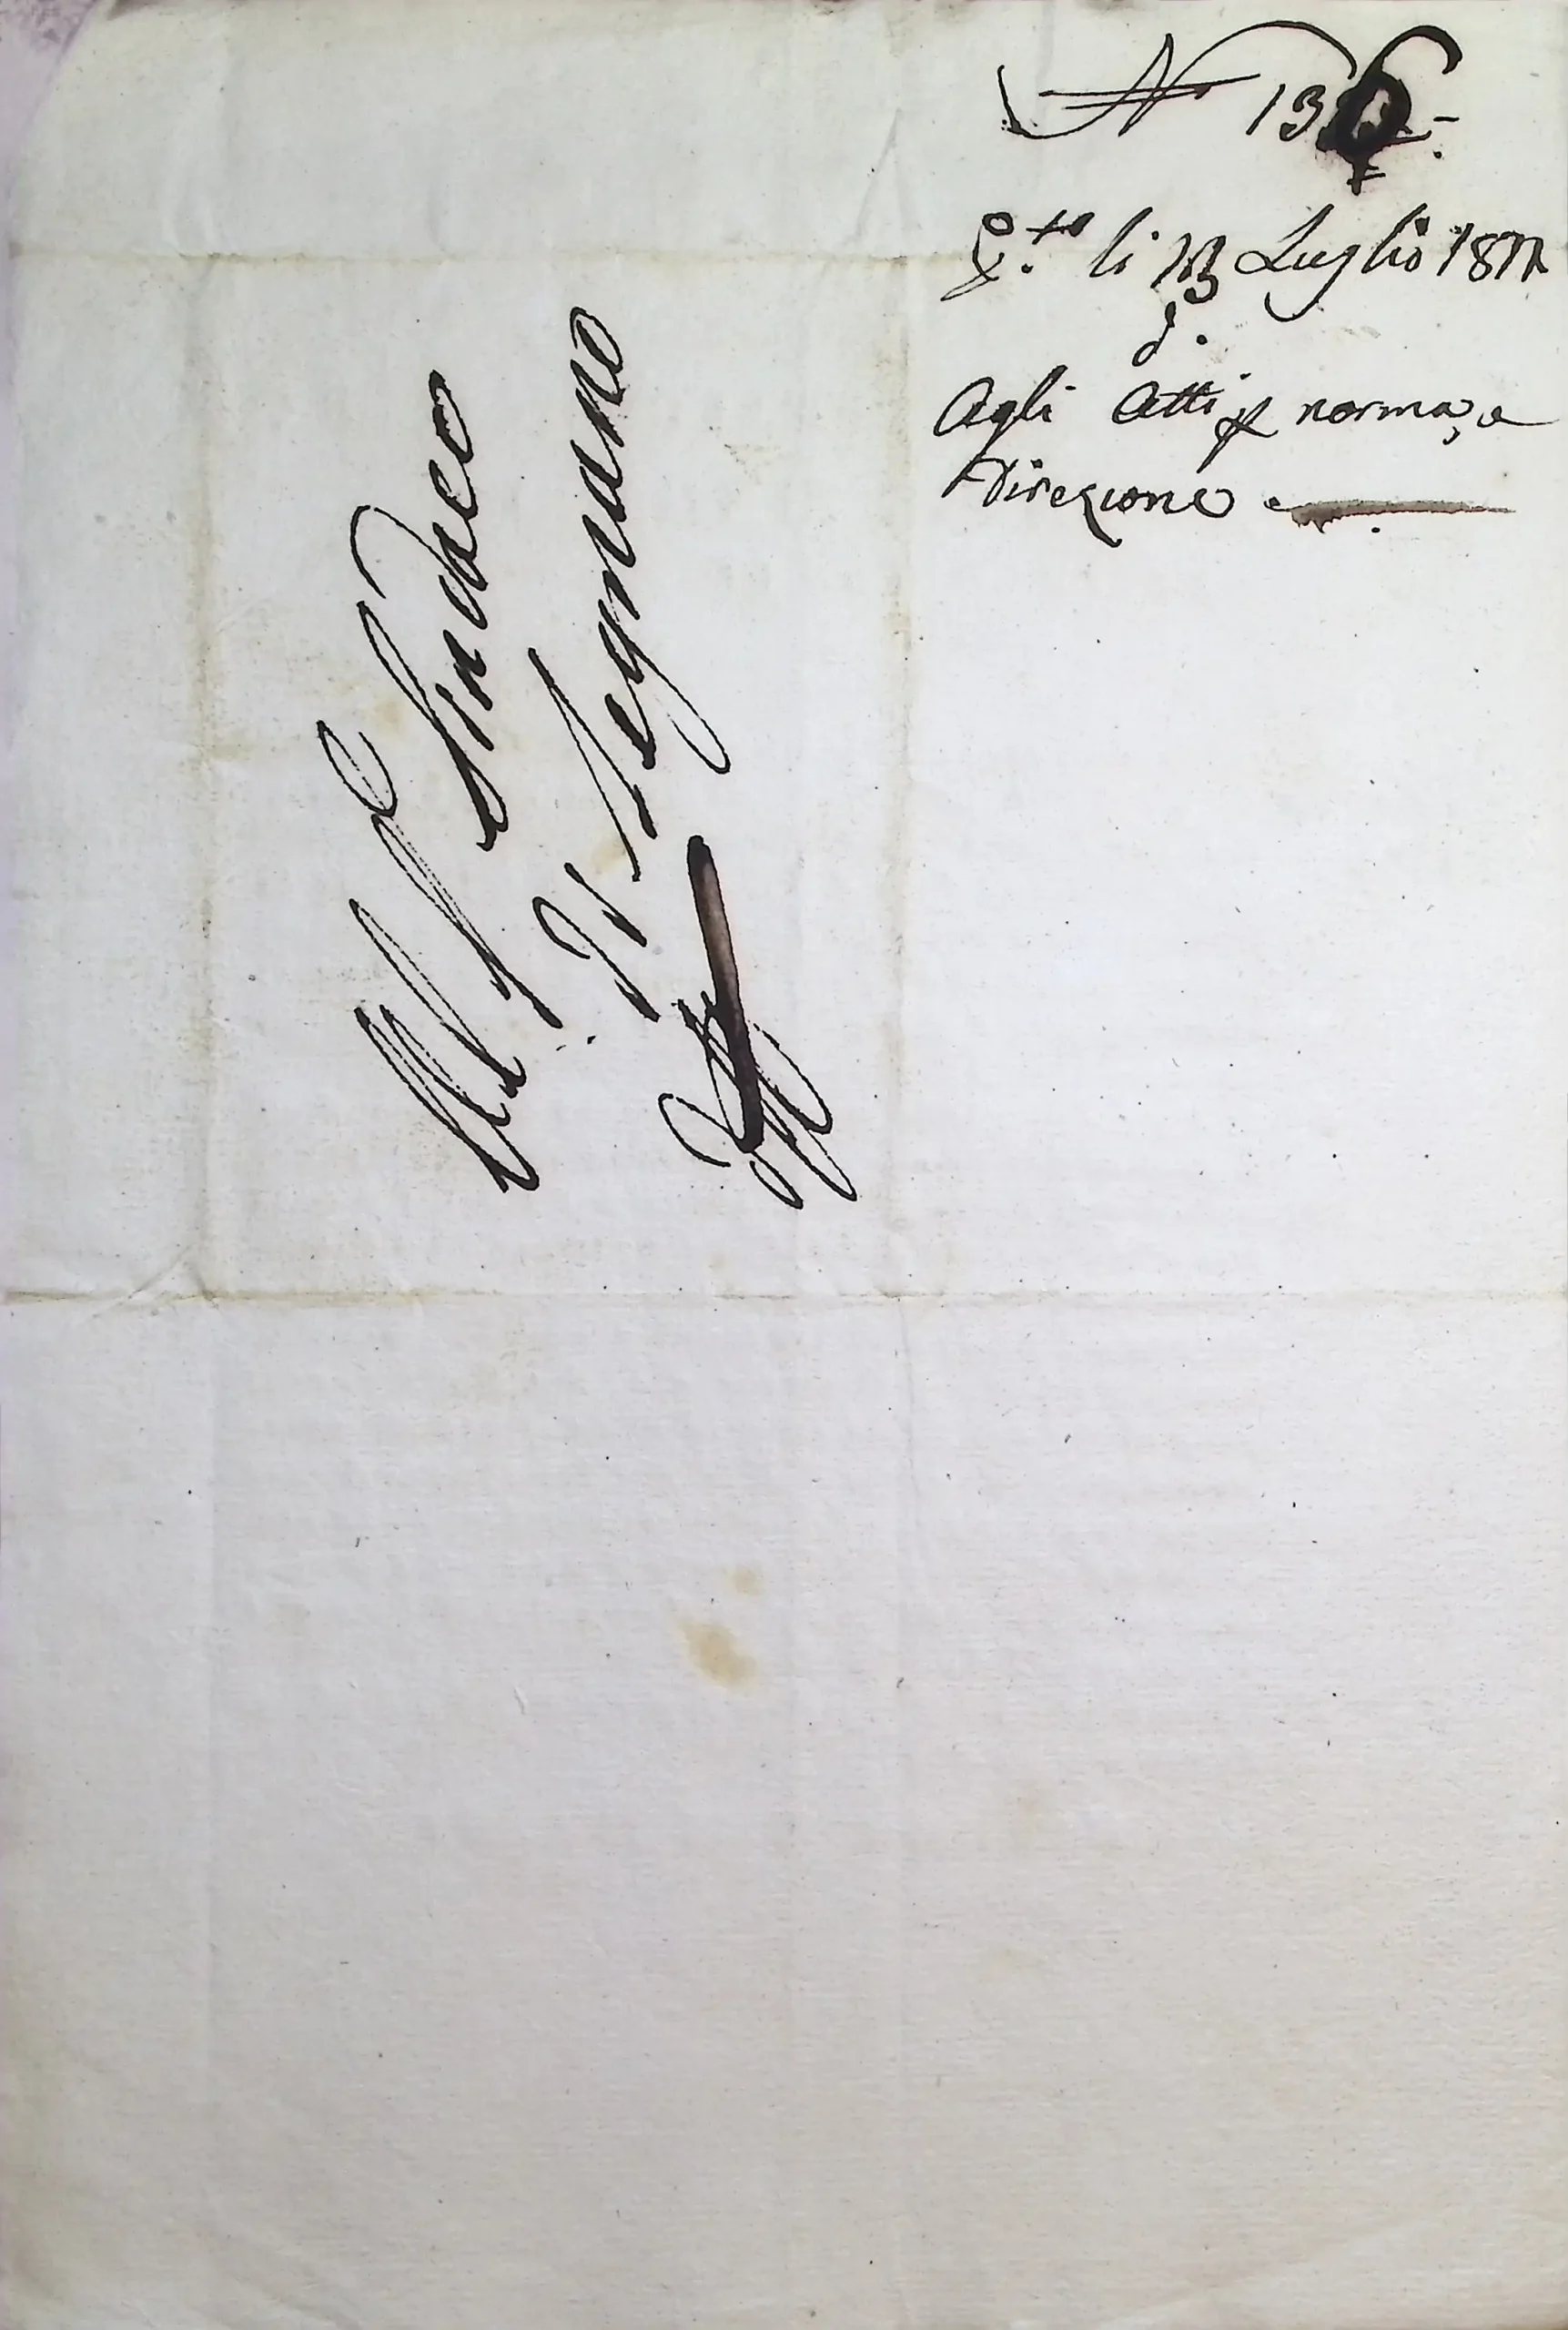 N° 136.
P.to li 13 Luglio 1811
d.
Agli Atti p norma, e
Direzione
Al S.r Sindaco
Di Legnano